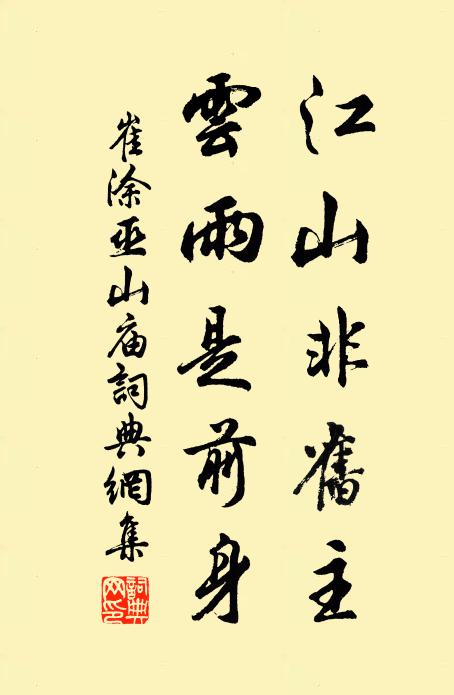 江山非舊主
雲雨是前身
崔涂巫山庙詞典網集
詞典網印